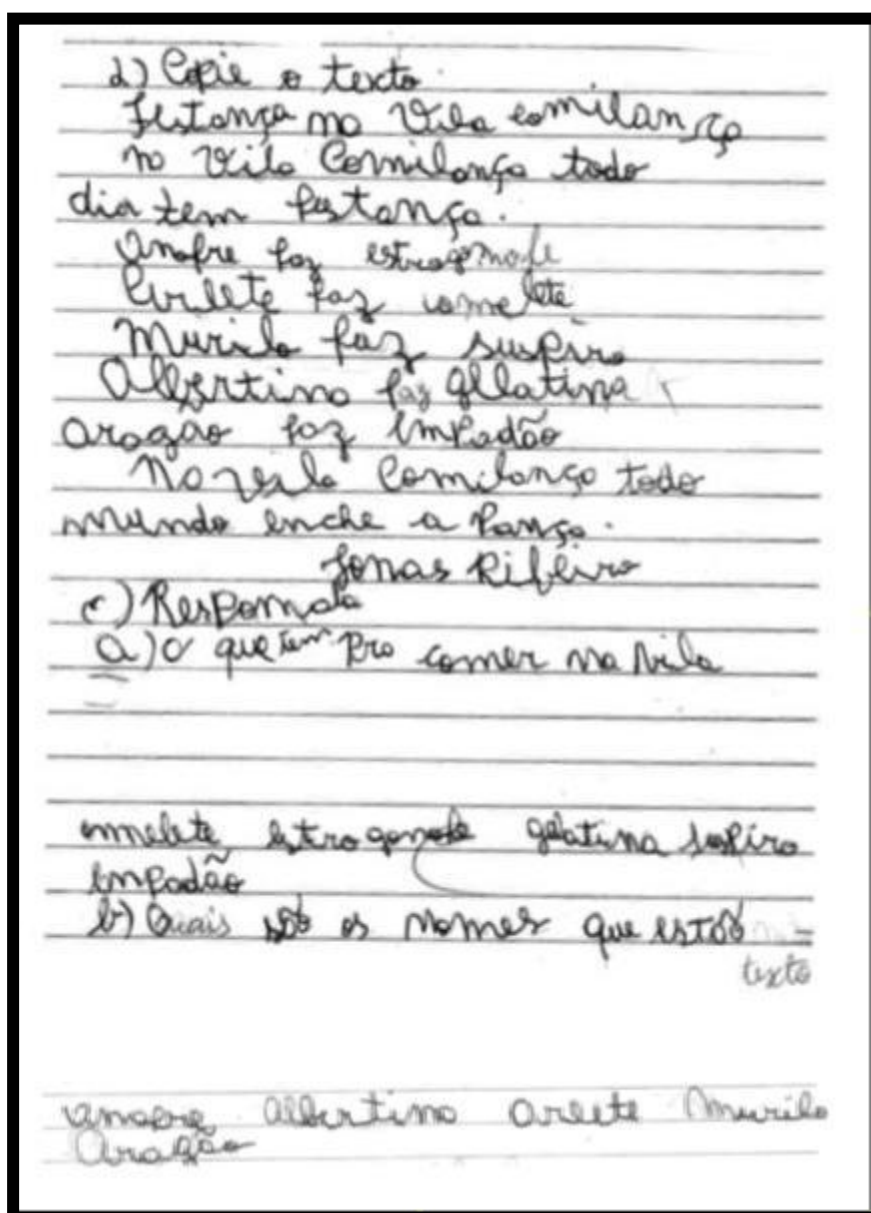 d) Copie o texto.
Festança na Vila comilança
na Vila Comilança todo
dia tem festança.
Onofre faz estrogonofe
Arlete faz omelete
Murilo faz suspiro
Albertina faz gelatina
aragão faz empadão
Na vila Comilança todo
mundo enche a Pança.
Jonas Ribeiro
e) Responda
a) O que tem pra comer na vila
omelete estrogonofe gelatina suspiro
empadão
b) Quais são os nomes que estão
texto
onofre Albertina arlete Murilo
Aragão